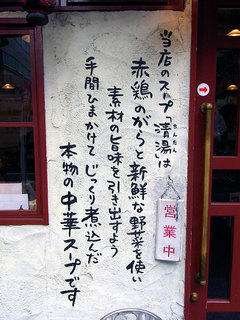 当店のスープ「清湯」は
赤鶏のがらと新鮮な野菜を使い
素材の旨味を引き出すよう
手間ひまかけてじっくり煮込んだ
本物の中華スープです
営業中